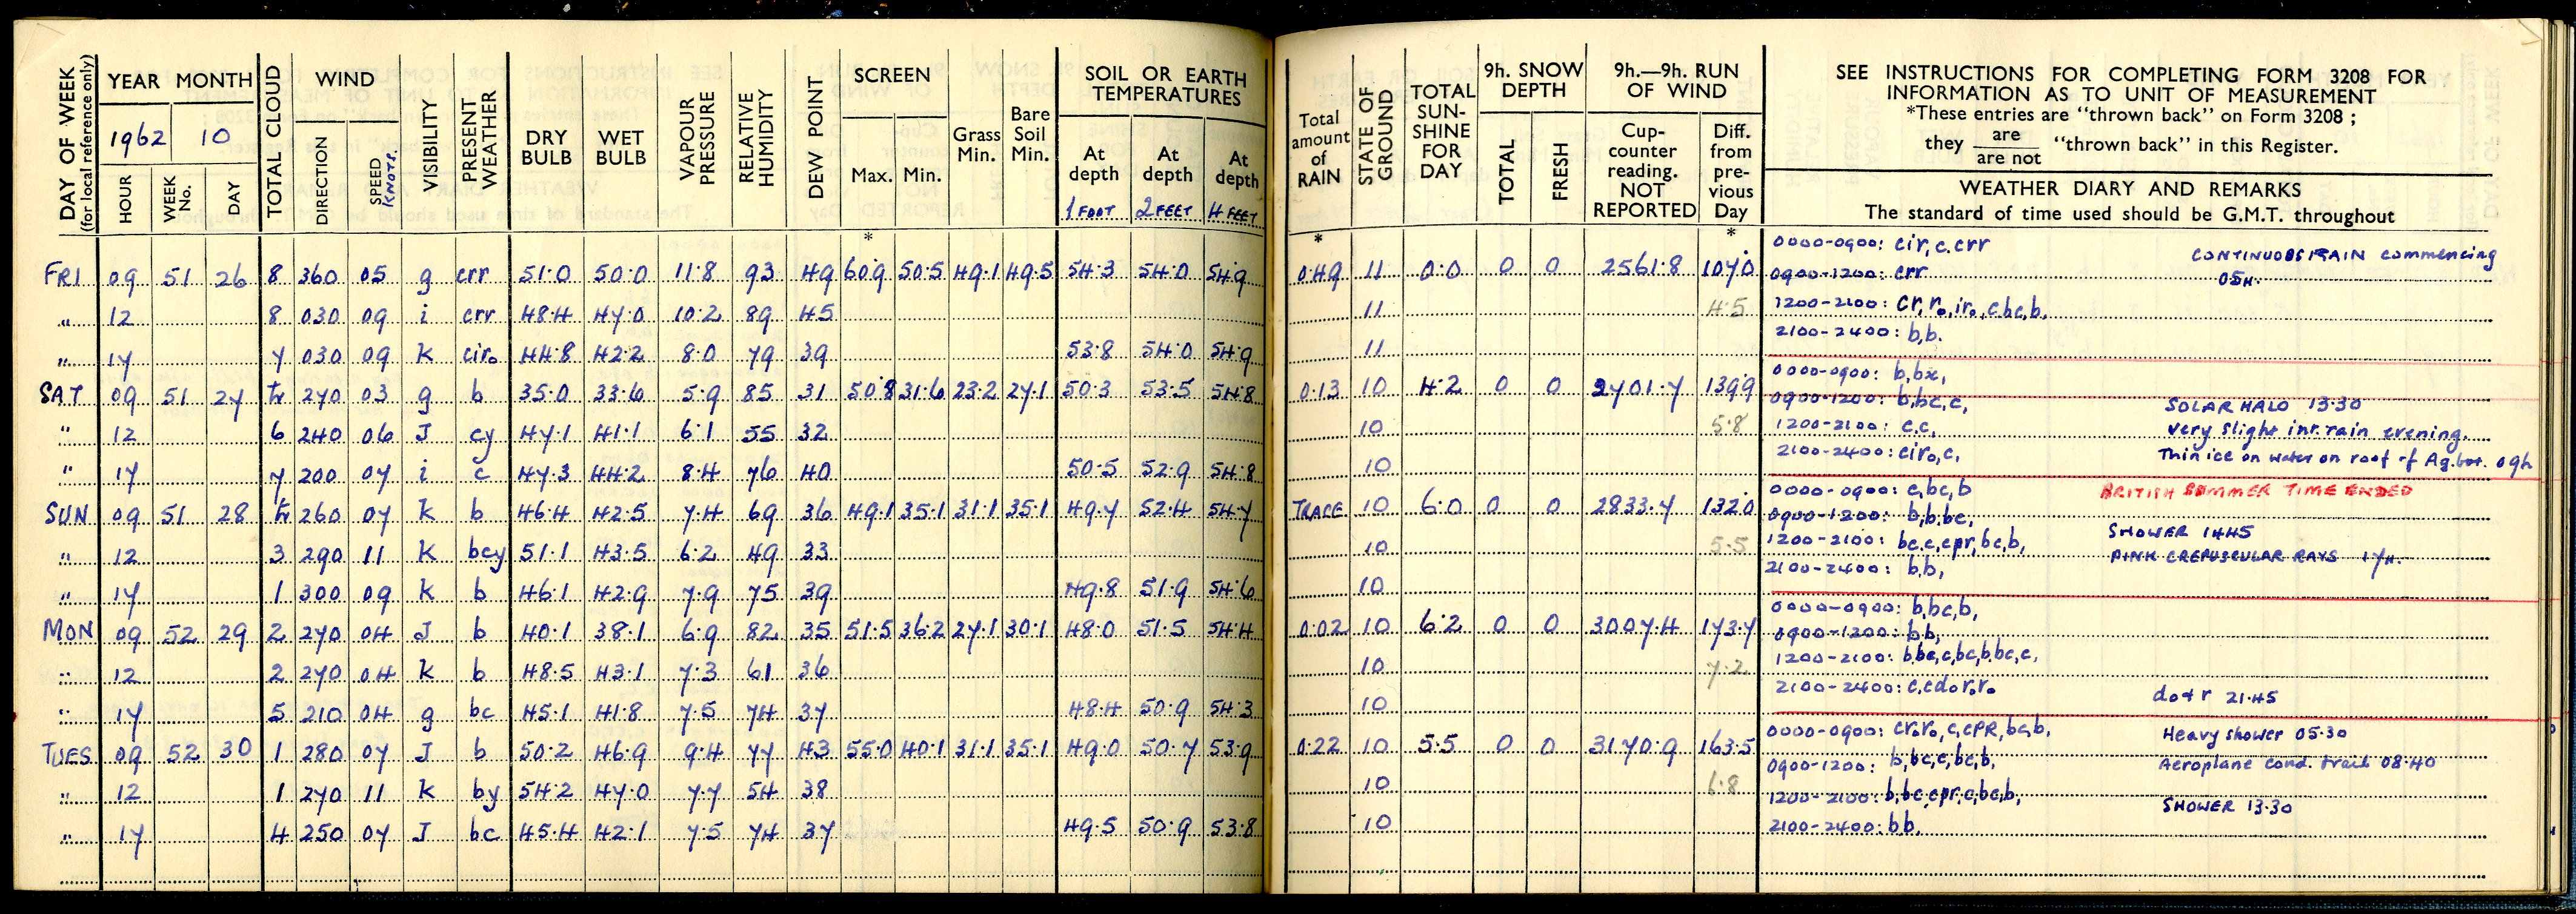 DAY OF WEEK
(for local reference only)
YEAR MONTH
1962 10
HOUR WEEK No. DAY
TOTAL CLOUD
WIND
DIRECTION SPEED KNOTS.
VISIBILITY
PRESENT WEATHER
DRY BULB
WET BULB
VAPOUR PRESSURE
RELATIVE HUMIDITY
DEW POINT
SCREEN
Max. Min.
Grass Min.
Bare Soil Min.
SOIL OR EARTH TEMPERATURES
At depth At depth At depth
1 FOOT 2 FEET 4 FEET
*
FRI 09 51 26 8 360 05 g crr 51.0 50.0 11.8 93 49 60.9 50.5 49.1 49.5 54.3 54.0 54.9
" 12 8 030 09 i crr 48.4 47.0 10.2 89 45
" 17 7 030 09 k cir₀ 44.8 42.2 8.0 79 39 53.8 54.0 54.9
SAT 09 51 27 tr 270 03 g b 35.0 33.6 5.9 85 31 50.8 31.6 23.2 27.1 50.3 53.5 54.8
" 12 6 240 06 J cy 47.1 41.1 6.1 55 32
" 17 7 200 07 i c 47.3 44.2 8.4 76 40 50.5 52.9 54.8
SUN 09 51 28 tr 260 07 k b 46.4 42.5 7.4 69 36 49.1 35.1 31.1 35.1 49.7 52.4 54.7
" 12 3 290 11 k bcy 51.1 43.5 6.2 49 33
" 17 1 300 09 k b 46.1 42.9 7.9 75 39 49.8 51.9 54.6
MON 09 52 29 2 270 04 J b 40.1 38.1 6.9 82 35 51.5 36.2 27.1 30.1 48.0 51.5 54.4
" 12 2 270 04 k b 48.5 43.1 7.3 61 36
" 17 5 210 04 g bc 45.1 41.8 7.5 74 37 48.4 50.9 54.3
TUES 09 52 30 1 280 07 J b 50.2 46.9 9.4 77 43 55.0 40.1 31.1 35.1 49.0 50.7 53.9
" 12 1 270 11 k by 54.2 47.0 7.7 54 38
" 17 4 250 07 J bc 45.4 42.1 7.5 74 37 49.5 50.9 53.8
Total amount of RAIN
STATE OF GROUND
TOTAL SUN-SHINE FOR DAY
9h. SNOW DEPTH
TOTAL FRESH
9h.—9h. RUN OF WIND
Cup-counter reading. NOT REPORTED
Diff. from pre-vious Day
SEE INSTRUCTIONS FOR COMPLETING FORM 3208 FOR
INFORMATION AS TO UNIT OF MEASUREMENT
*These entries are "thrown back" on Form 3208 ;
they are / are not "thrown back" in this Register.
WEATHER DIARY AND REMARKS
The standard of time used should be G.M.T. throughout
* *
0.49 11 0.0 0 0 2561.8 107.0
11 4.5
11
0.13 10 4.2 0 0 2701.7 139.9
10 5.8
10
TRACE 10 6.0 0 0 2833.7 132.0
10 5.5
10
0.02 10 6.2 0 0 3007.4 173.7
10 7.2
10
0.22 10 5.5 0 0 3170.9 163.5
10 1.8
10
0000-0900: cir, c, crr CONTINUOUS RAIN commencing
0900-1200: crr 05H.
1200-2100: cr, r₀, ir₀, c, bc, b,
2100-2400: b, b.
0000-0900: b, bx,
0900-1200: b, bc, c, SOLAR HALO 13.30
1200-2100: c.c, very slight int. rain evening.
2100-2400: cir₀, c, Thin ice on water on roof of Ag. bot. 09h
0000-0900: c, bc, b BRITISH SUMMER TIME ENDED
0900-1200: b, b, bc,
1200-2100: bc, c, cpr, bc, b, SHOWER 1445
2100-2400: b, b, PINK CREPUSCULAR RAYS 17H.
0000-0900: b, bc, b,
0900-1200: b b,
1200-2100: b bc, c, bc, b, bc, c,
2100-2400: c, cd₀ r₀ r₀ do+r 21.45
0000-0900: cr₀ r₀, c, cPR, bc, b, Heavy shower 05.30
0900-1200: b, bc, c, bc, b, Aeroplane cond. trail 08.40
1200-2100: b, bc, cpr, c, bc, b, SHOWER 13.30
2100-2400: b b.